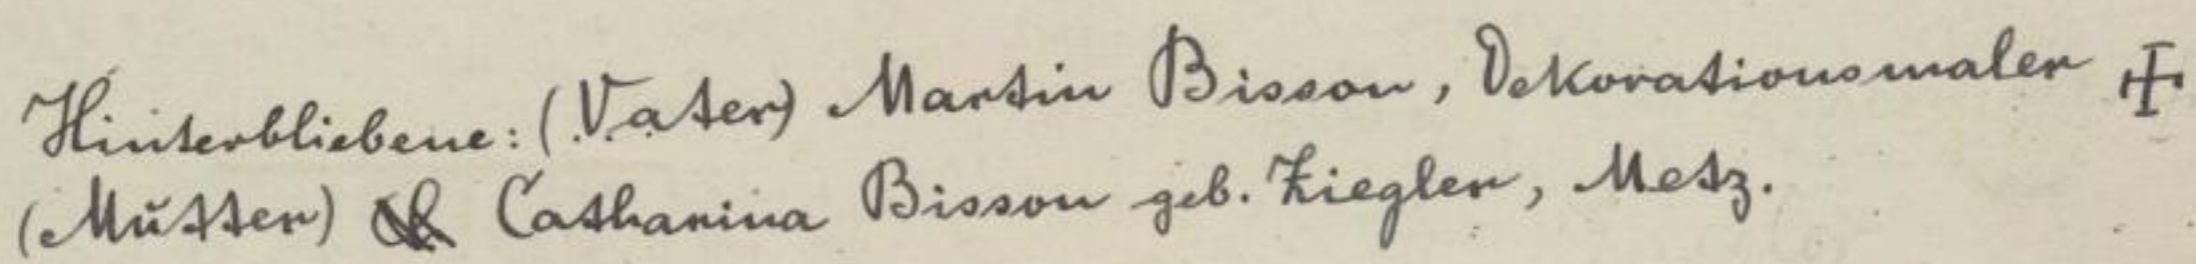 Hinterbliebene: (Vater) Martin Bisson, Dekorationsmaler ✠
(Mutter) Catharina Bisson geb. Ziegler, Metz.